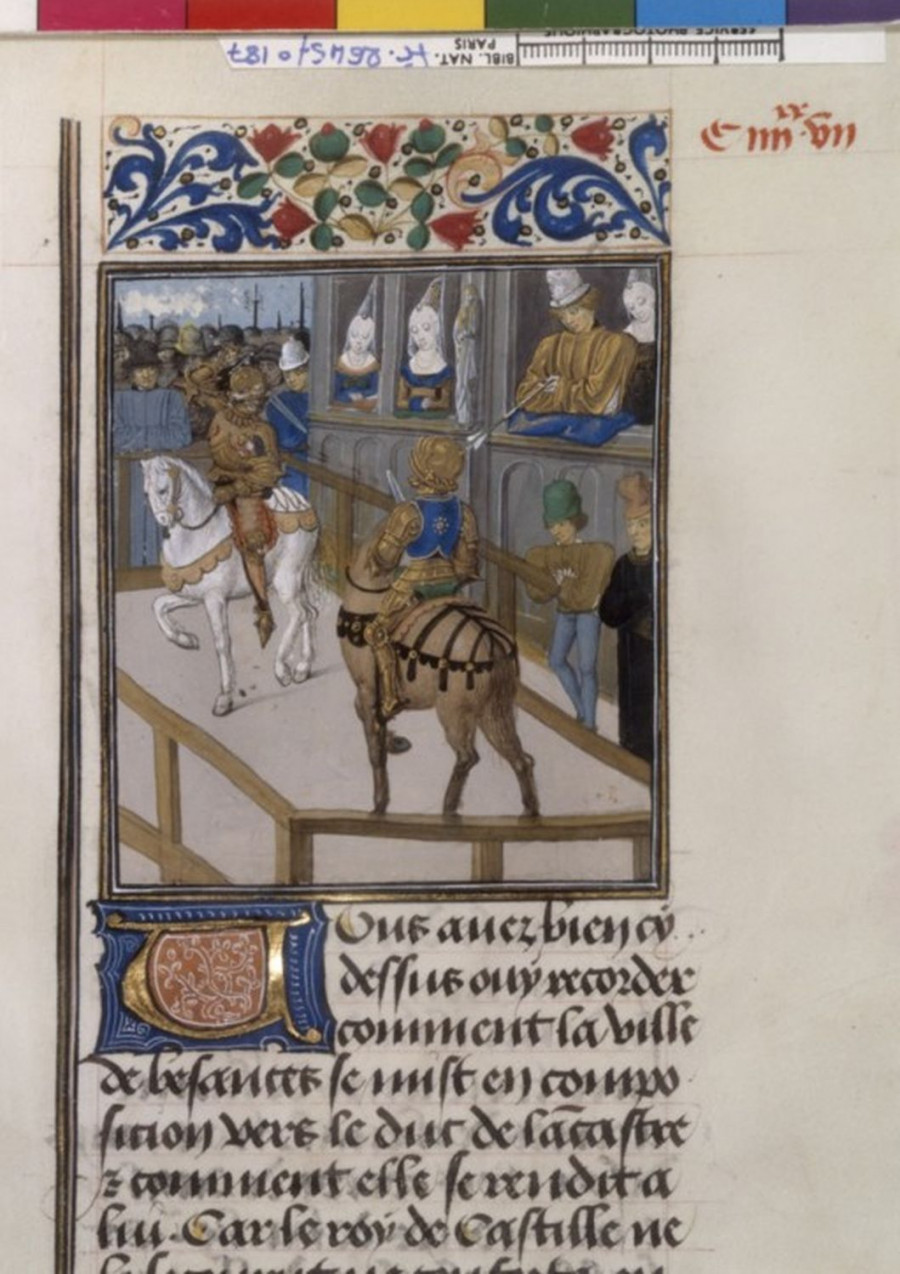 SERVICE PHOTOGRAPHIQUE
BIBL. NAT.
PARIS
C iiii xx vii
Vous auez bien cy
dessus ouy recorder
comment la ville
de besances se mist en compo
sicion vers le duc de lācastre
⁊ comment elle se rendit a
lui. Car le roy de Castille ne